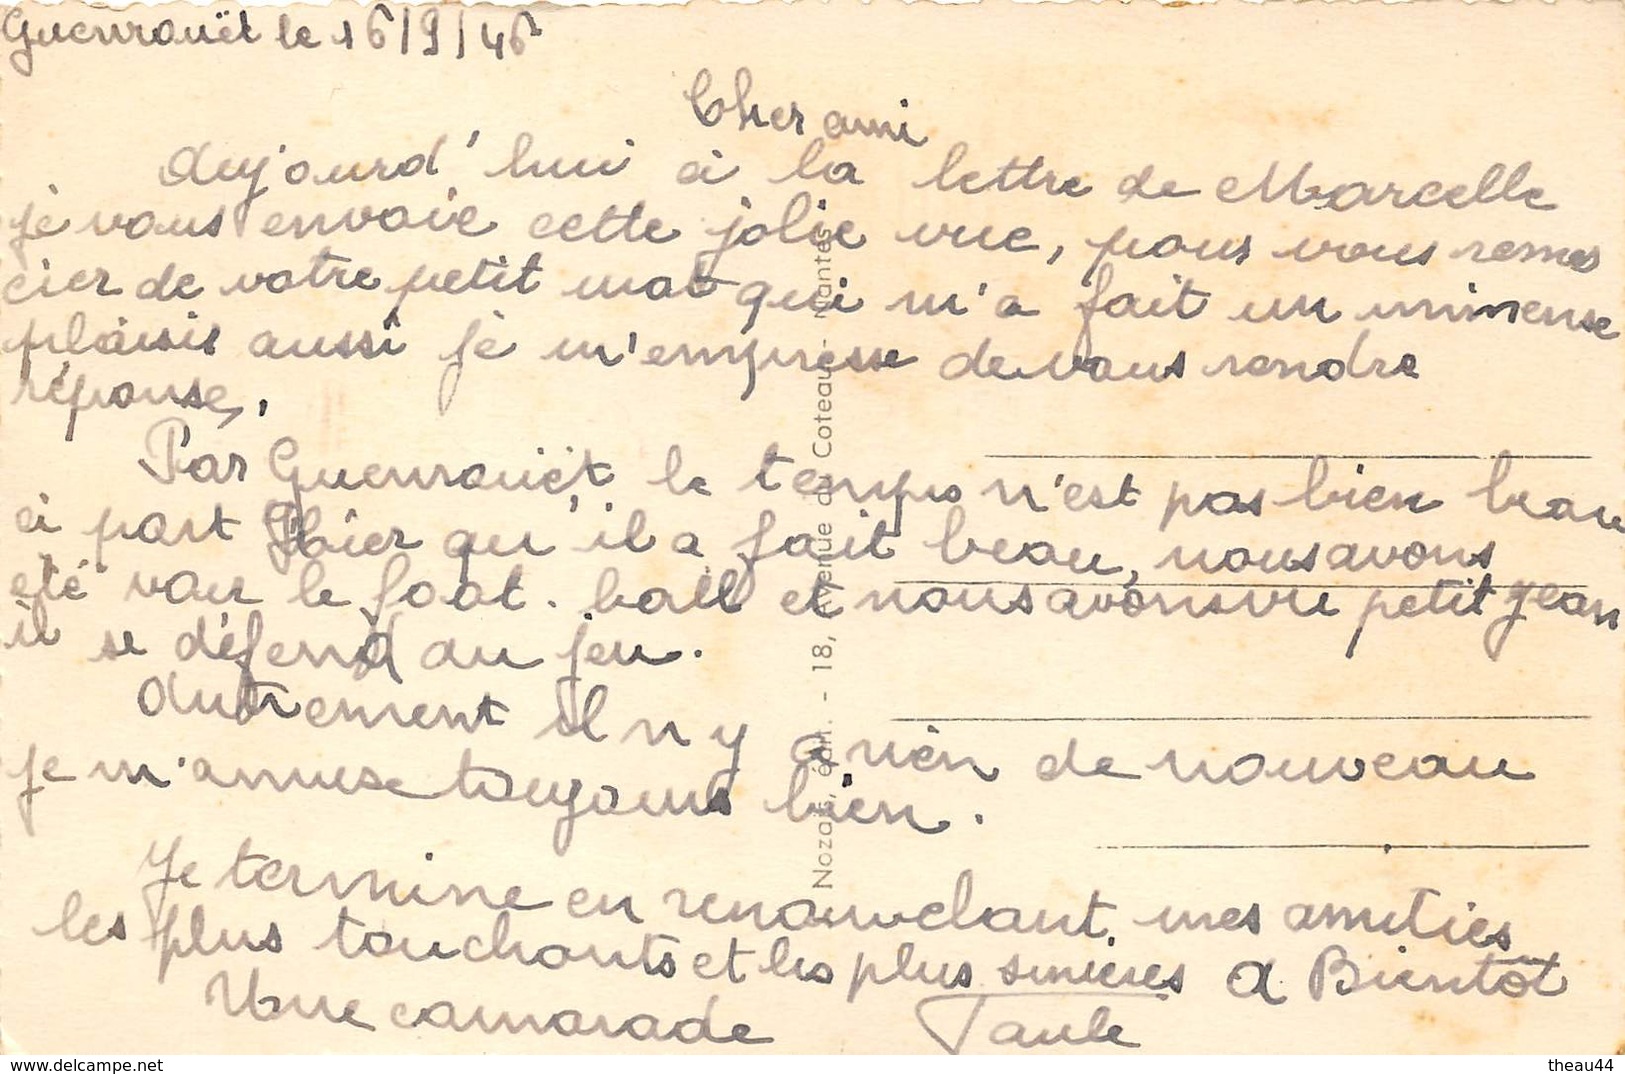 Guenrouët le 16/9/46
Cher ami
Aujourd'hui à la lettre de Marcelle
je vous envoie cette jolie vue, pour vous remer
cier de votre petit mot qui m'a fait un immense
plaisir aussi je m'empresse de vous rendre
réponse.
Par Guenrouët le temps n'est pas bien beau
à part Hier qu'il a fait beau, nous avons
été voir le foot. ball et nous avons vu petit Jean
il se défend au jeu.
Autrement il n y a rien de nouveau
je m'amuse toujours bien.
Je termine en renouvelant mes amitiés
les plus touchants et les plus sincères A Bientôt
Une camarade Paule
Nozais, édit. - 18, Avenue du Coteau - Nantes
www.delcampe.net
theau44